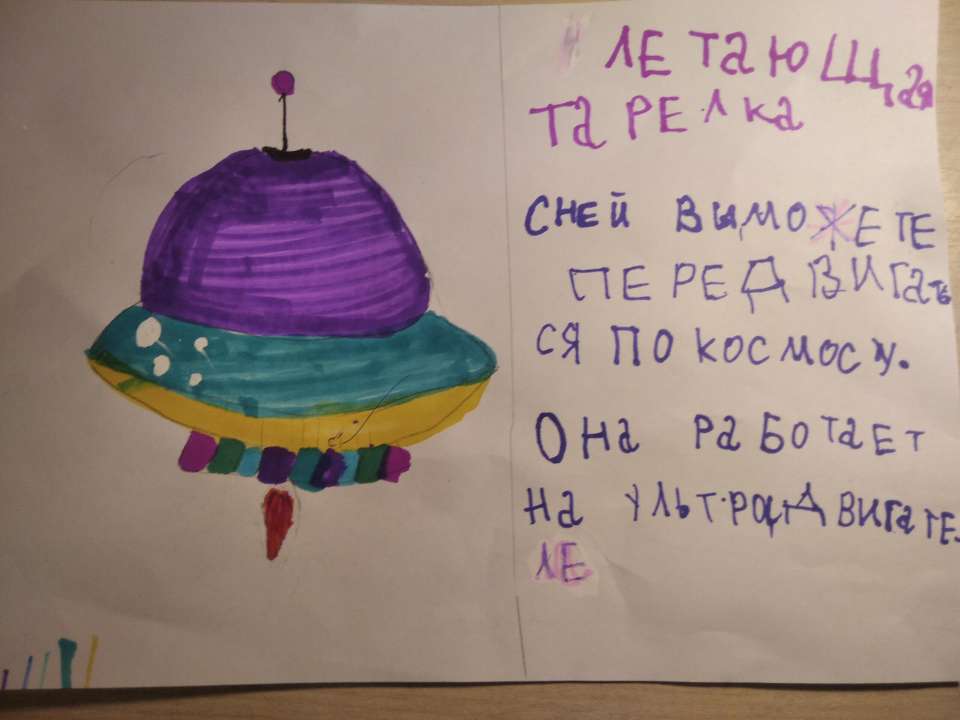 ЛЕТАЮЩАЯ
ТАРЕЛКА
СНЕЙ ВЫМОЖЕТЕ
ПЕРЕДВИГАТЬ
СЯ ПО КОСМОСУ.
ОНА РАБОТАЕТ
НА УЛЬТРАДВИГАТЕ-
ЛЕ